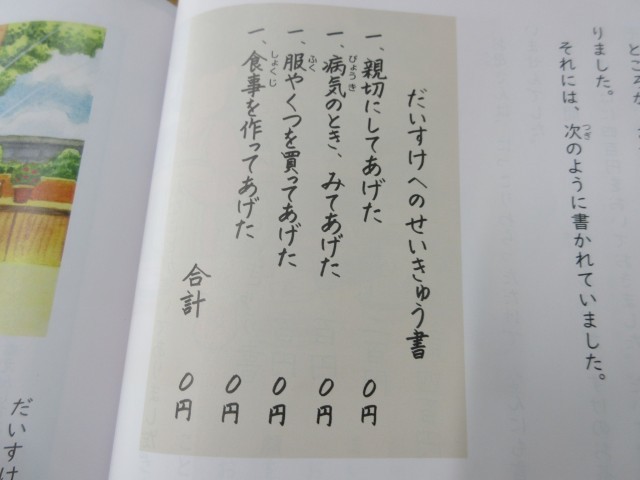 りました。
それには、次のように書かれていました。
だいすけへのせいきゅう書
一、親切にしてあげた 0円
一、病気のとき、みてあげた 0円
一、服やくつを買ってあげた 0円
一、食事を作ってあげた 0円
合計 0円
だいすけ